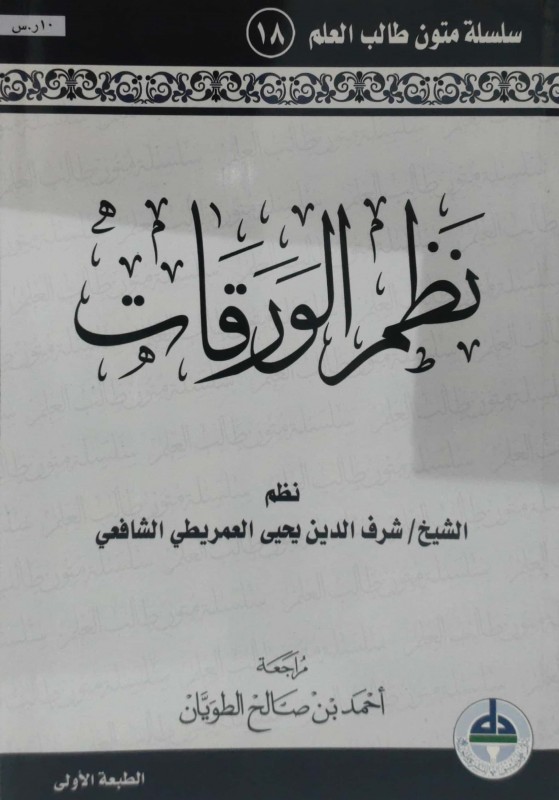 سلسلة متون طالب العلم ١٨
١٠ر.س
نَظم الوَرَقَات
نظم
الشيخ/ شرف الدين يحيى العمريطي الشافعي
مُراجَعَة
أحمَد بْن صَالح الطويَّان
الطبعة الأولى